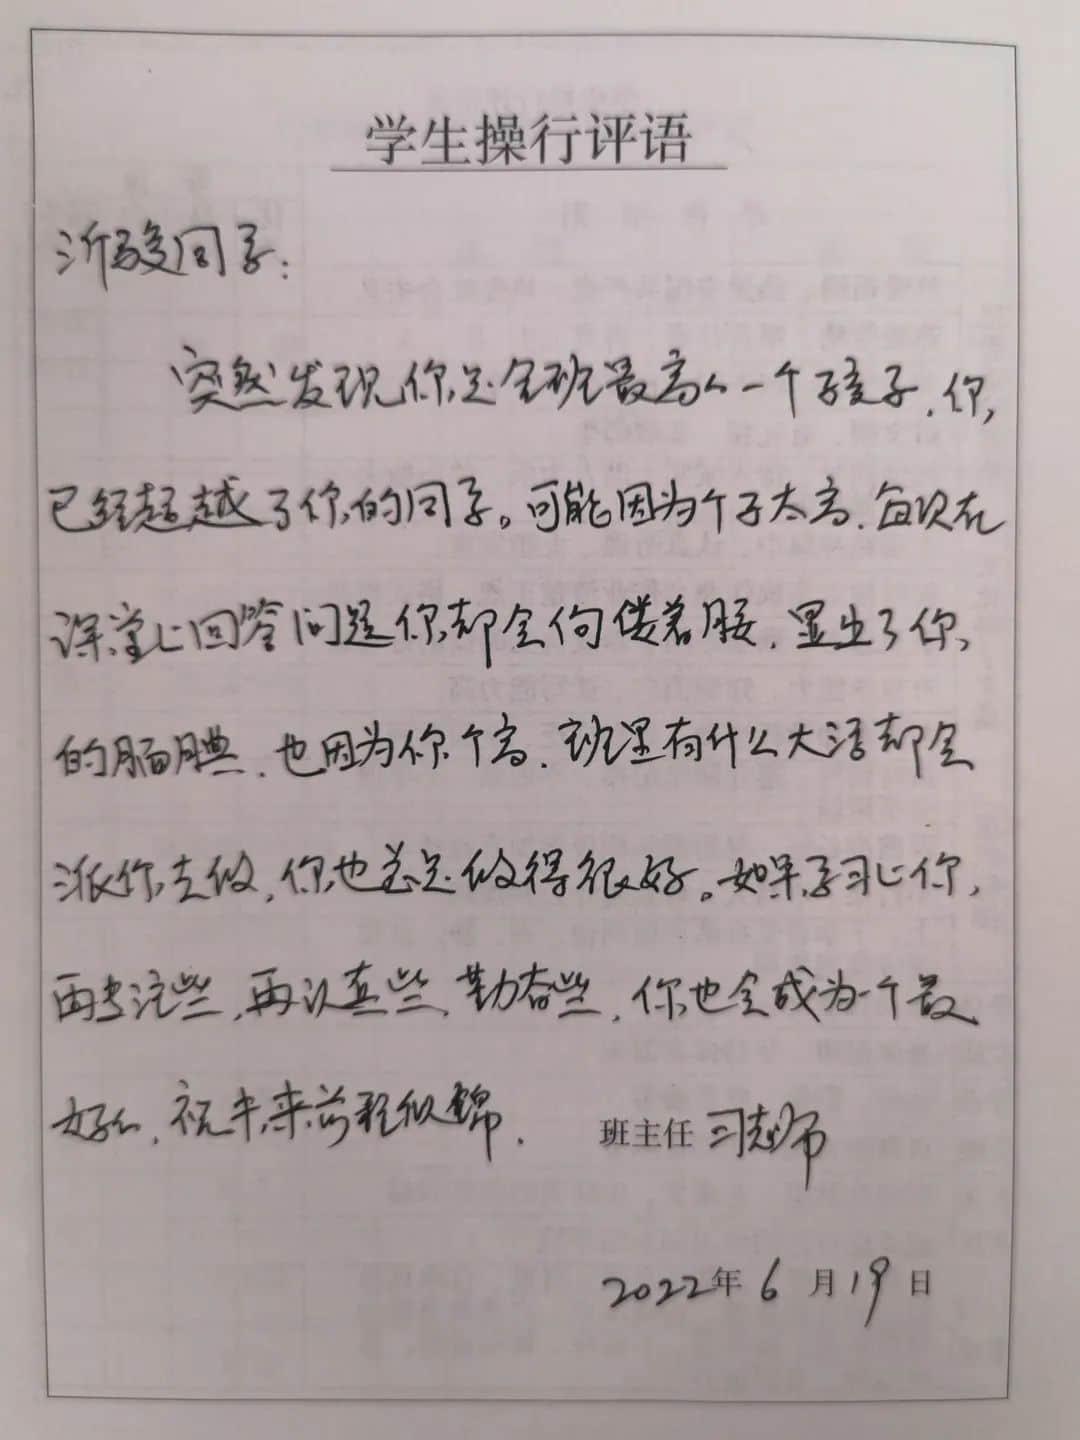 学生操行评语
沂骏同学：
突然发现你是全班最高的一个孩子，你
已经超越了你的同学。可能因为个子太高，每次在
课堂上回答问题你却会佝偻着腰，显出了你
的腼腆，也因为你个高，班里有什么大活都会
派你去做，你也总是做得很好。如果学习上你
再专注些，再认真些，勤奋些，你也会成为一个最
好的，祝未来前程似锦。 班主任 习老师
2022年6月19日